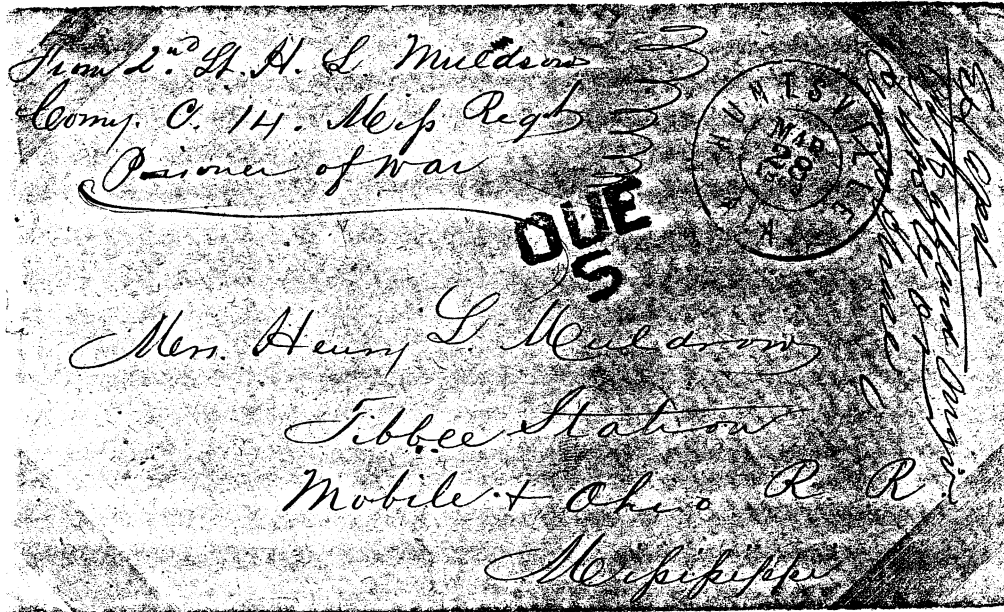 From 2nd Lt. H. L Muldrow
Comy. C. 14. Miss Regt
Prisoner of War
DUE
5
HUNTSVILLE
MAR
Mrs. Henry L. Muldrow
Tibbee Station
Mobile + Ohio R R
Mississippi